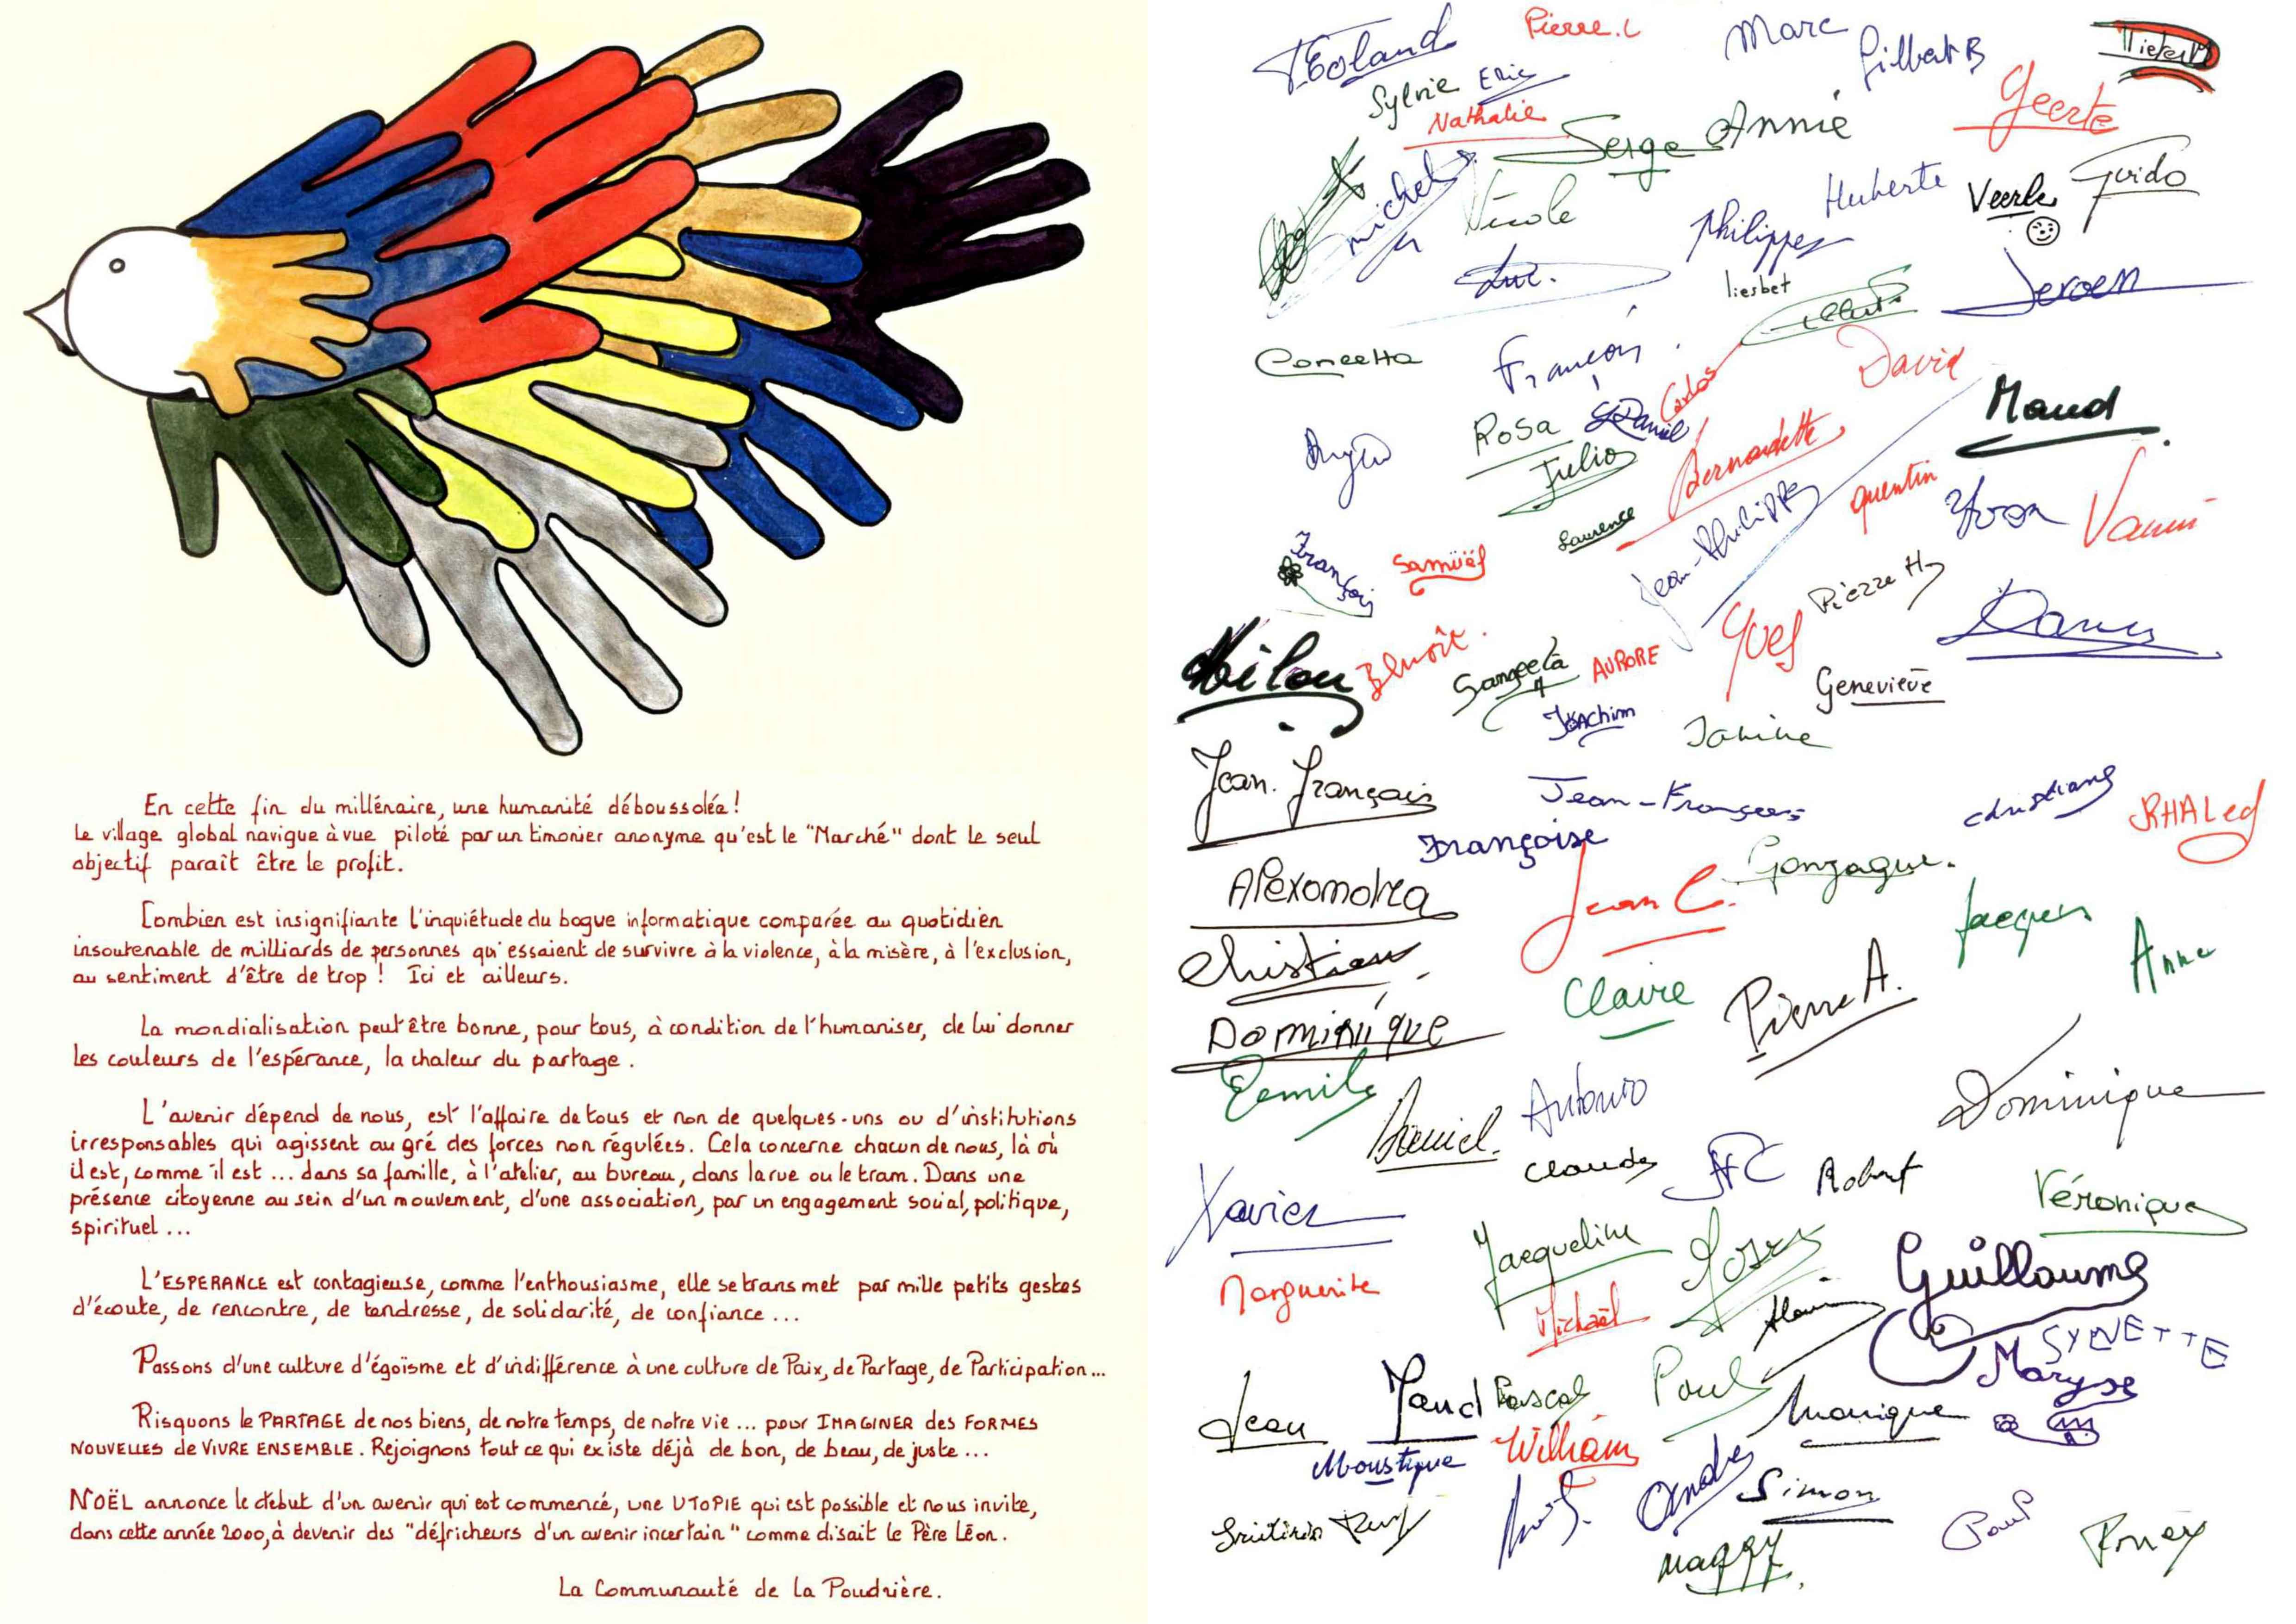 En cette fin du millénaire, une humanité déboussolée!
Le village global navigue à vue piloté par un timonier anonyme qu'est le "Marché" dont le seul
objectif paraît être le profit.
Combien est insignifiante l'inquiétude du bogue informatique comparée au quotidien
insoutenable de milliards de personnes qui essaient de survivre à la violence, à la misère, à l'exclusion,
au sentiment d'être de trop! Ici et ailleurs.
La mondialisation peut être bonne, pour tous, à condition de l'humaniser, de lui donner
les couleurs de l'espérance, la chaleur du partage.
L'avenir dépend de nous, est l'affaire de tous et non de quelques-uns ou d'institutions
irresponsables qui agissent au gré des forces non régulées. Cela concerne chacun de nous, là où
il est, comme il est ... dans sa famille, à l'atelier, au bureau, dans la rue ou le tram. Dans une
présence citoyenne au sein d'un mouvement, d'une association, par un engagement social, politique,
spirituel ...
L'ESPERANCE est contagieuse, comme l'enthousiasme, elle se transmet par mille petits gestes
d'écoute, de rencontre, de tendresse, de solidarité, de confiance ...
Passons d'une culture d'égoïsme et d'indifférence à une culture de Paix, de Partage, de Participation...
Risquons le PARTAGE de nos biens, de notre temps, de notre vie ... pour IMAGINER des FORMES
NOUVELLES de VIVRE ENSEMBLE. Rejoignons tout ce qui existe déjà de bon, de beau, de juste ...
NOËL annonce le début d'un avenir qui est commencé, une UTOPIE qui est possible et nous invite,
dans cette année 2000, à devenir des "défricheurs d'un avenir incertain" comme disait le Père Léon.
La Communauté de la Poudrière.
Pierre.L
Marc
Gilbert B
Sylvie
Eric
Nathalie
Serge
Annie
Geerte
Michel
Nicole
Philippe
Huberte
Veerle
Guido
Luc.
liesbet
Jeroen
Concetta
François
Carlos
David
Maud
Rosa
Daniel
Julio
Bernadette
Laurence
Jean-Philippe
quentin
Yvon
François
Samüël
Pierre H
Yves
Benoît.
Sangeeta
AURORE
Geneviève
Joachim
Janine
Jean-François
Jean-François
christiane
KHALed
Françoise
Alexandra
Jean C.
Gonzague.
Jacques
Anne
Christian
Claire
Pierre A.
Dominique
Daniel.
Antonio
Dominique
Claude
Robert
Xavier
Véronique
Jacqueline
Marguerite
Michaël
Guillaume
SYLVETTE
Maryse
Jean
Maud
Pascal
Paul
Monique
Moustique
William
André
Simon
Maggy
Paul